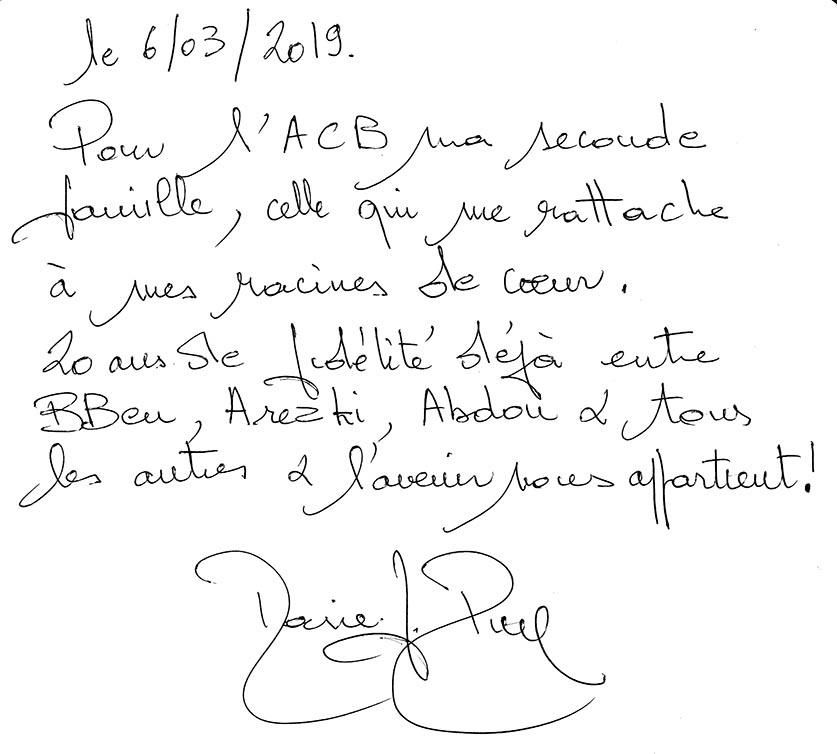 le 6/03/2019.
Pour l'ACB ma seconde
famille, celle qui me rattache
à mes racines de cœur.
20 ans de fidélité déjà entre
BBen, Arezki, Abdou & tous
les autres & l'avenir nous appartient!